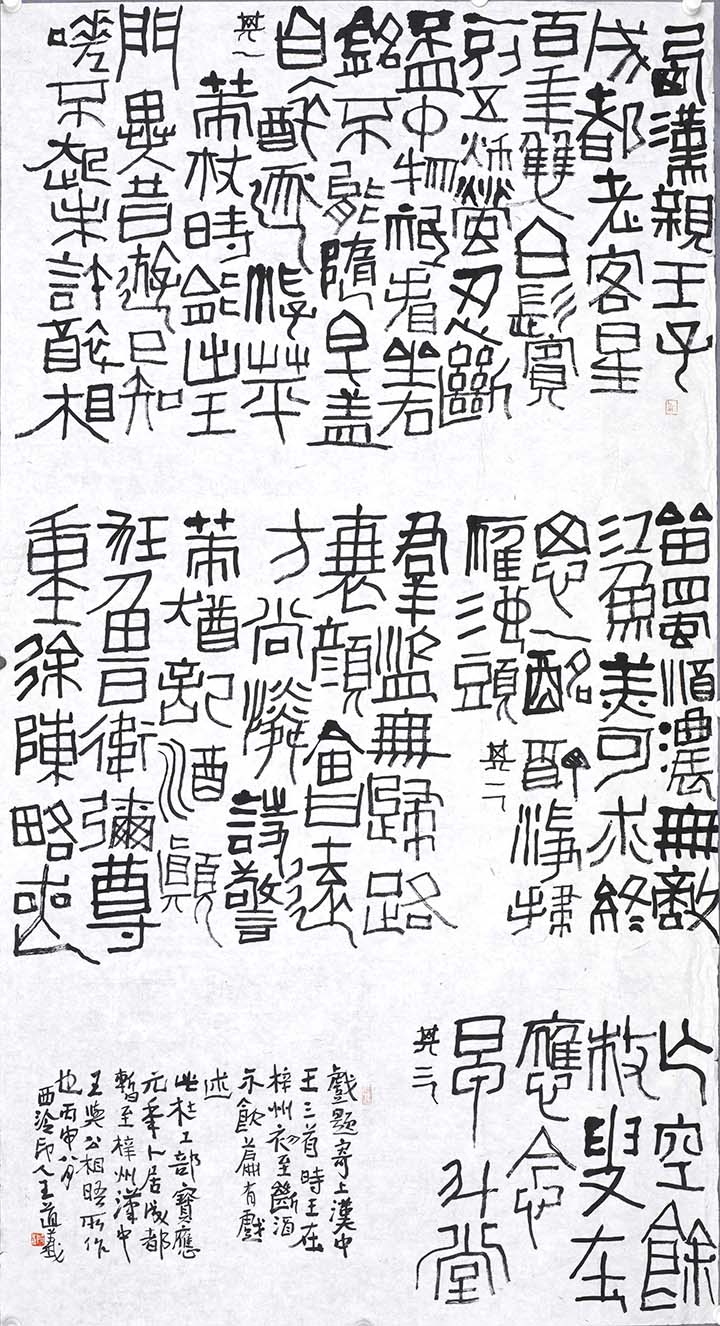 西漢親王子
成都老客星
百年雙白鬢
一別五秋螢忍斷
盃中物祗看坐右
銘不能隨皂盖
自醉逐浮萍
其一
策杖時能出王
門異昔遊已知
嗟不起未許醉相
留蜀酒濃無敵
江魚美可求終
思一酩酊淨掃
雁池頭
其二
群盜無歸路
衰顏會遠
方尚憐詩警
策猶記酒顛
狂魯衛彌尊
重徐陳略喪
亡空餘
枚叟在
應念
早升堂
其三
戲題寄上漢中
王三首時王在
梓州初至斷酒
不飲篇有戲
述
此杜工部寶應
元年卜居成都
暫至梓州漢中
王與公相晤所作
也丙申八月
西泠印人王道義